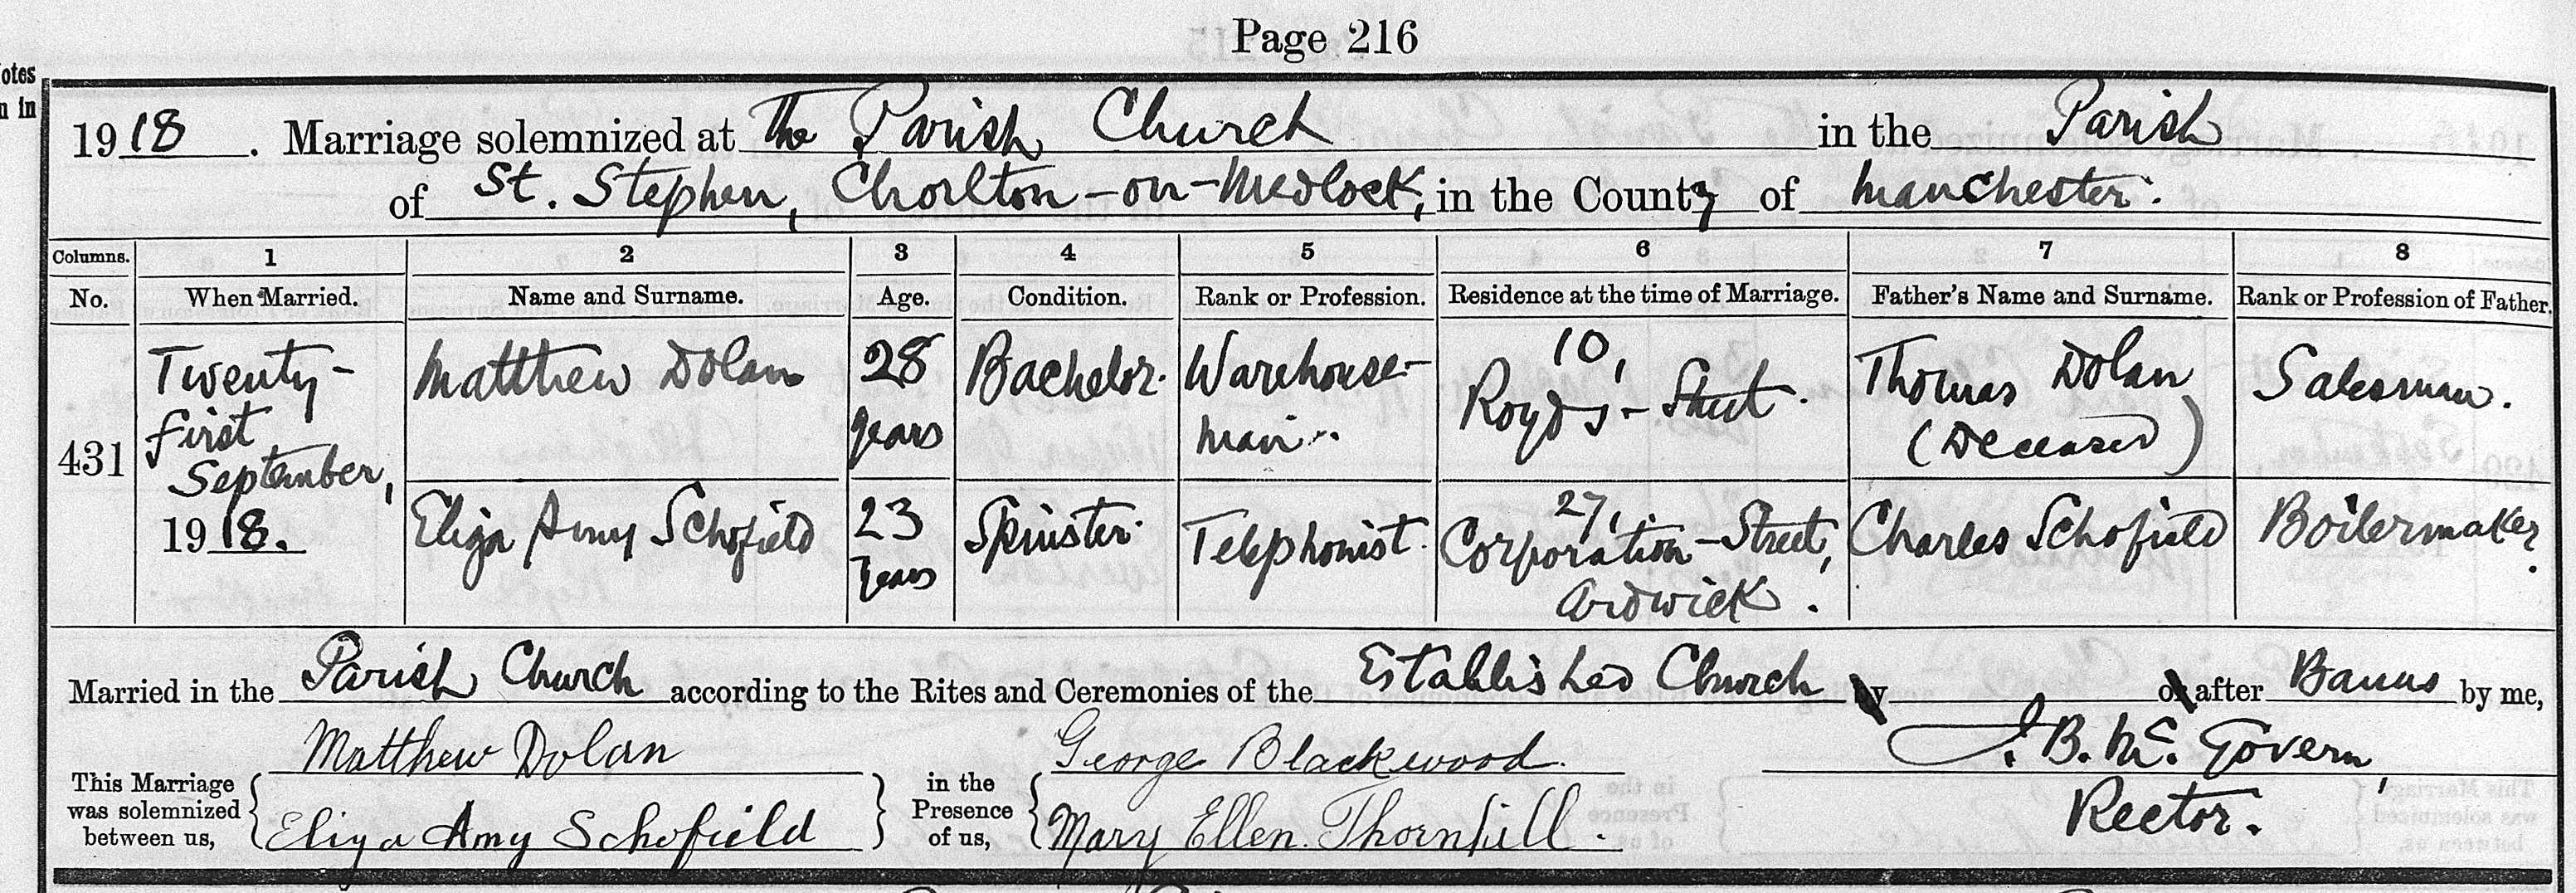 Page 216
otes
n in
1918. Marriage solemnized at The Parish Church in the Parish
of St. Stephen, Chorlton-on-Medlock, in the County of Manchester.
Columns. 1 2 3 4 5 6 7 8
No. When Married. Name and Surname. Age. Condition. Rank or Profession. Residence at the time of Marriage. Father's Name and Surname. Rank or Profession of Father.
431
Twenty-
first
September,
1918.
Matthew Dolan
28
years
Bachelor.
Warehouse-
man.
10,
Royds-Street.
Thomas Dolan
(Deceased)
Salesman.
Eliza Amy Schofield
23
years
Spinster.
Telephonist.
27,
Corporation-Street,
Ardwick.
Charles Schofield
Boilermaker.
Married in the Parish Church according to the Rites and Ceremonies of the Established Church by or after Banns by me,
Matthew Dolan George Blackwood. J. B. Mc. Govern,
This Marriage
was solemnized
between us,
Eliza Amy Schofield
in the
Presence
of us,
Mary Ellen Thornhill.
Rector.